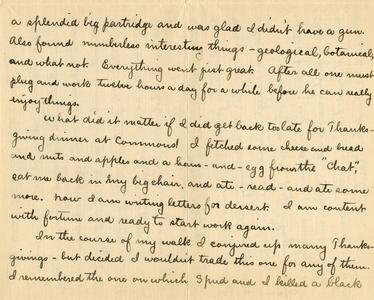 a splendid big partridge and was glad I didn't have a gun.
Also found numberless interesting things - geological, botanical,
and what not. Everything went just great. After all one must
plug and work twelve hours a day for a while before he can really
enjoy things.
What did it matter if I did get back too late for Thanks-
giving dinner at Commons! I fetched some cheese and bread
and nuts and apples and a ham-and-egg from the "Chat",
sat me back in my big chair, and ate - read - and ate some
more. Now I am writing letters for dessert. I am content
with fortune and ready to start work again.
In the course of my walk I conjured up many Thanks-
givings - but decided I wouldn't trade this one for any of them.
I remembered the one on which Spud and I killed a black